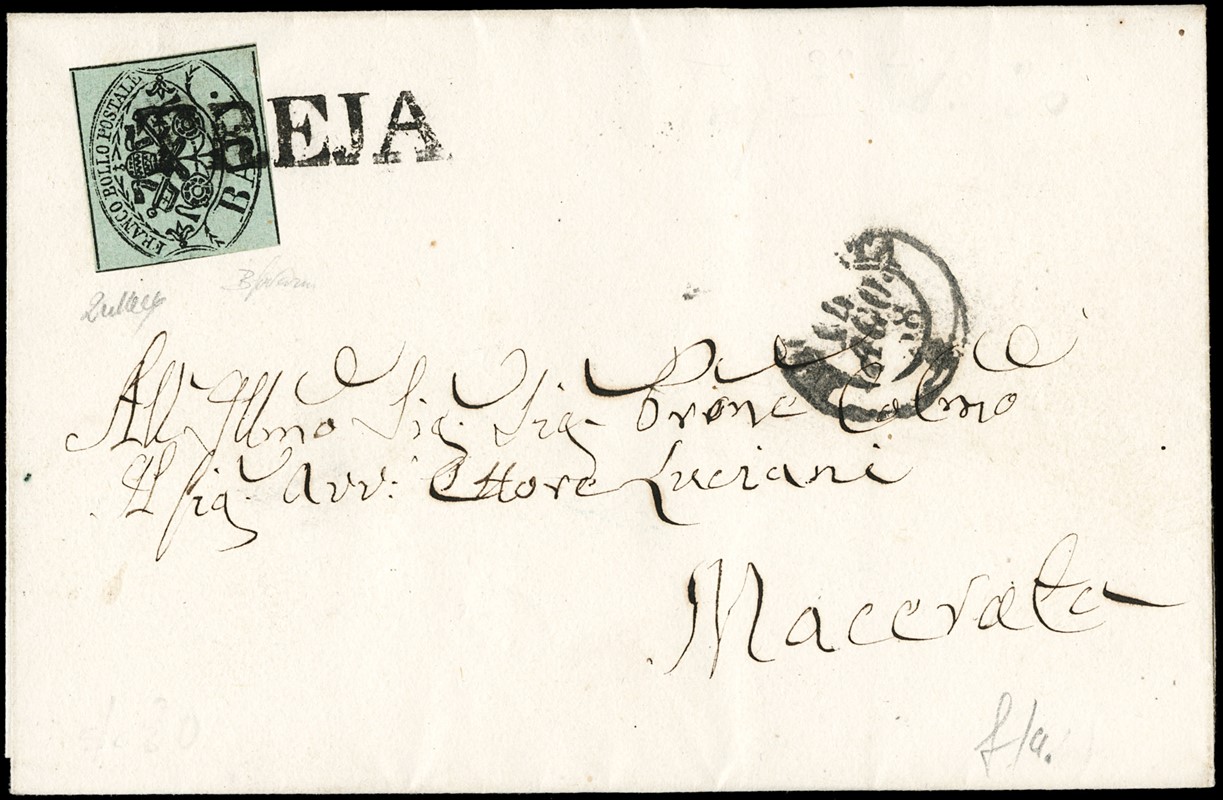 FRANCO BOLLO POSTALE
BA
EJA
14
AGO
58
All Illmo Sig. Sig. Prone Colmo
Il Sig. Avv: Ettore Luciani
Macerata